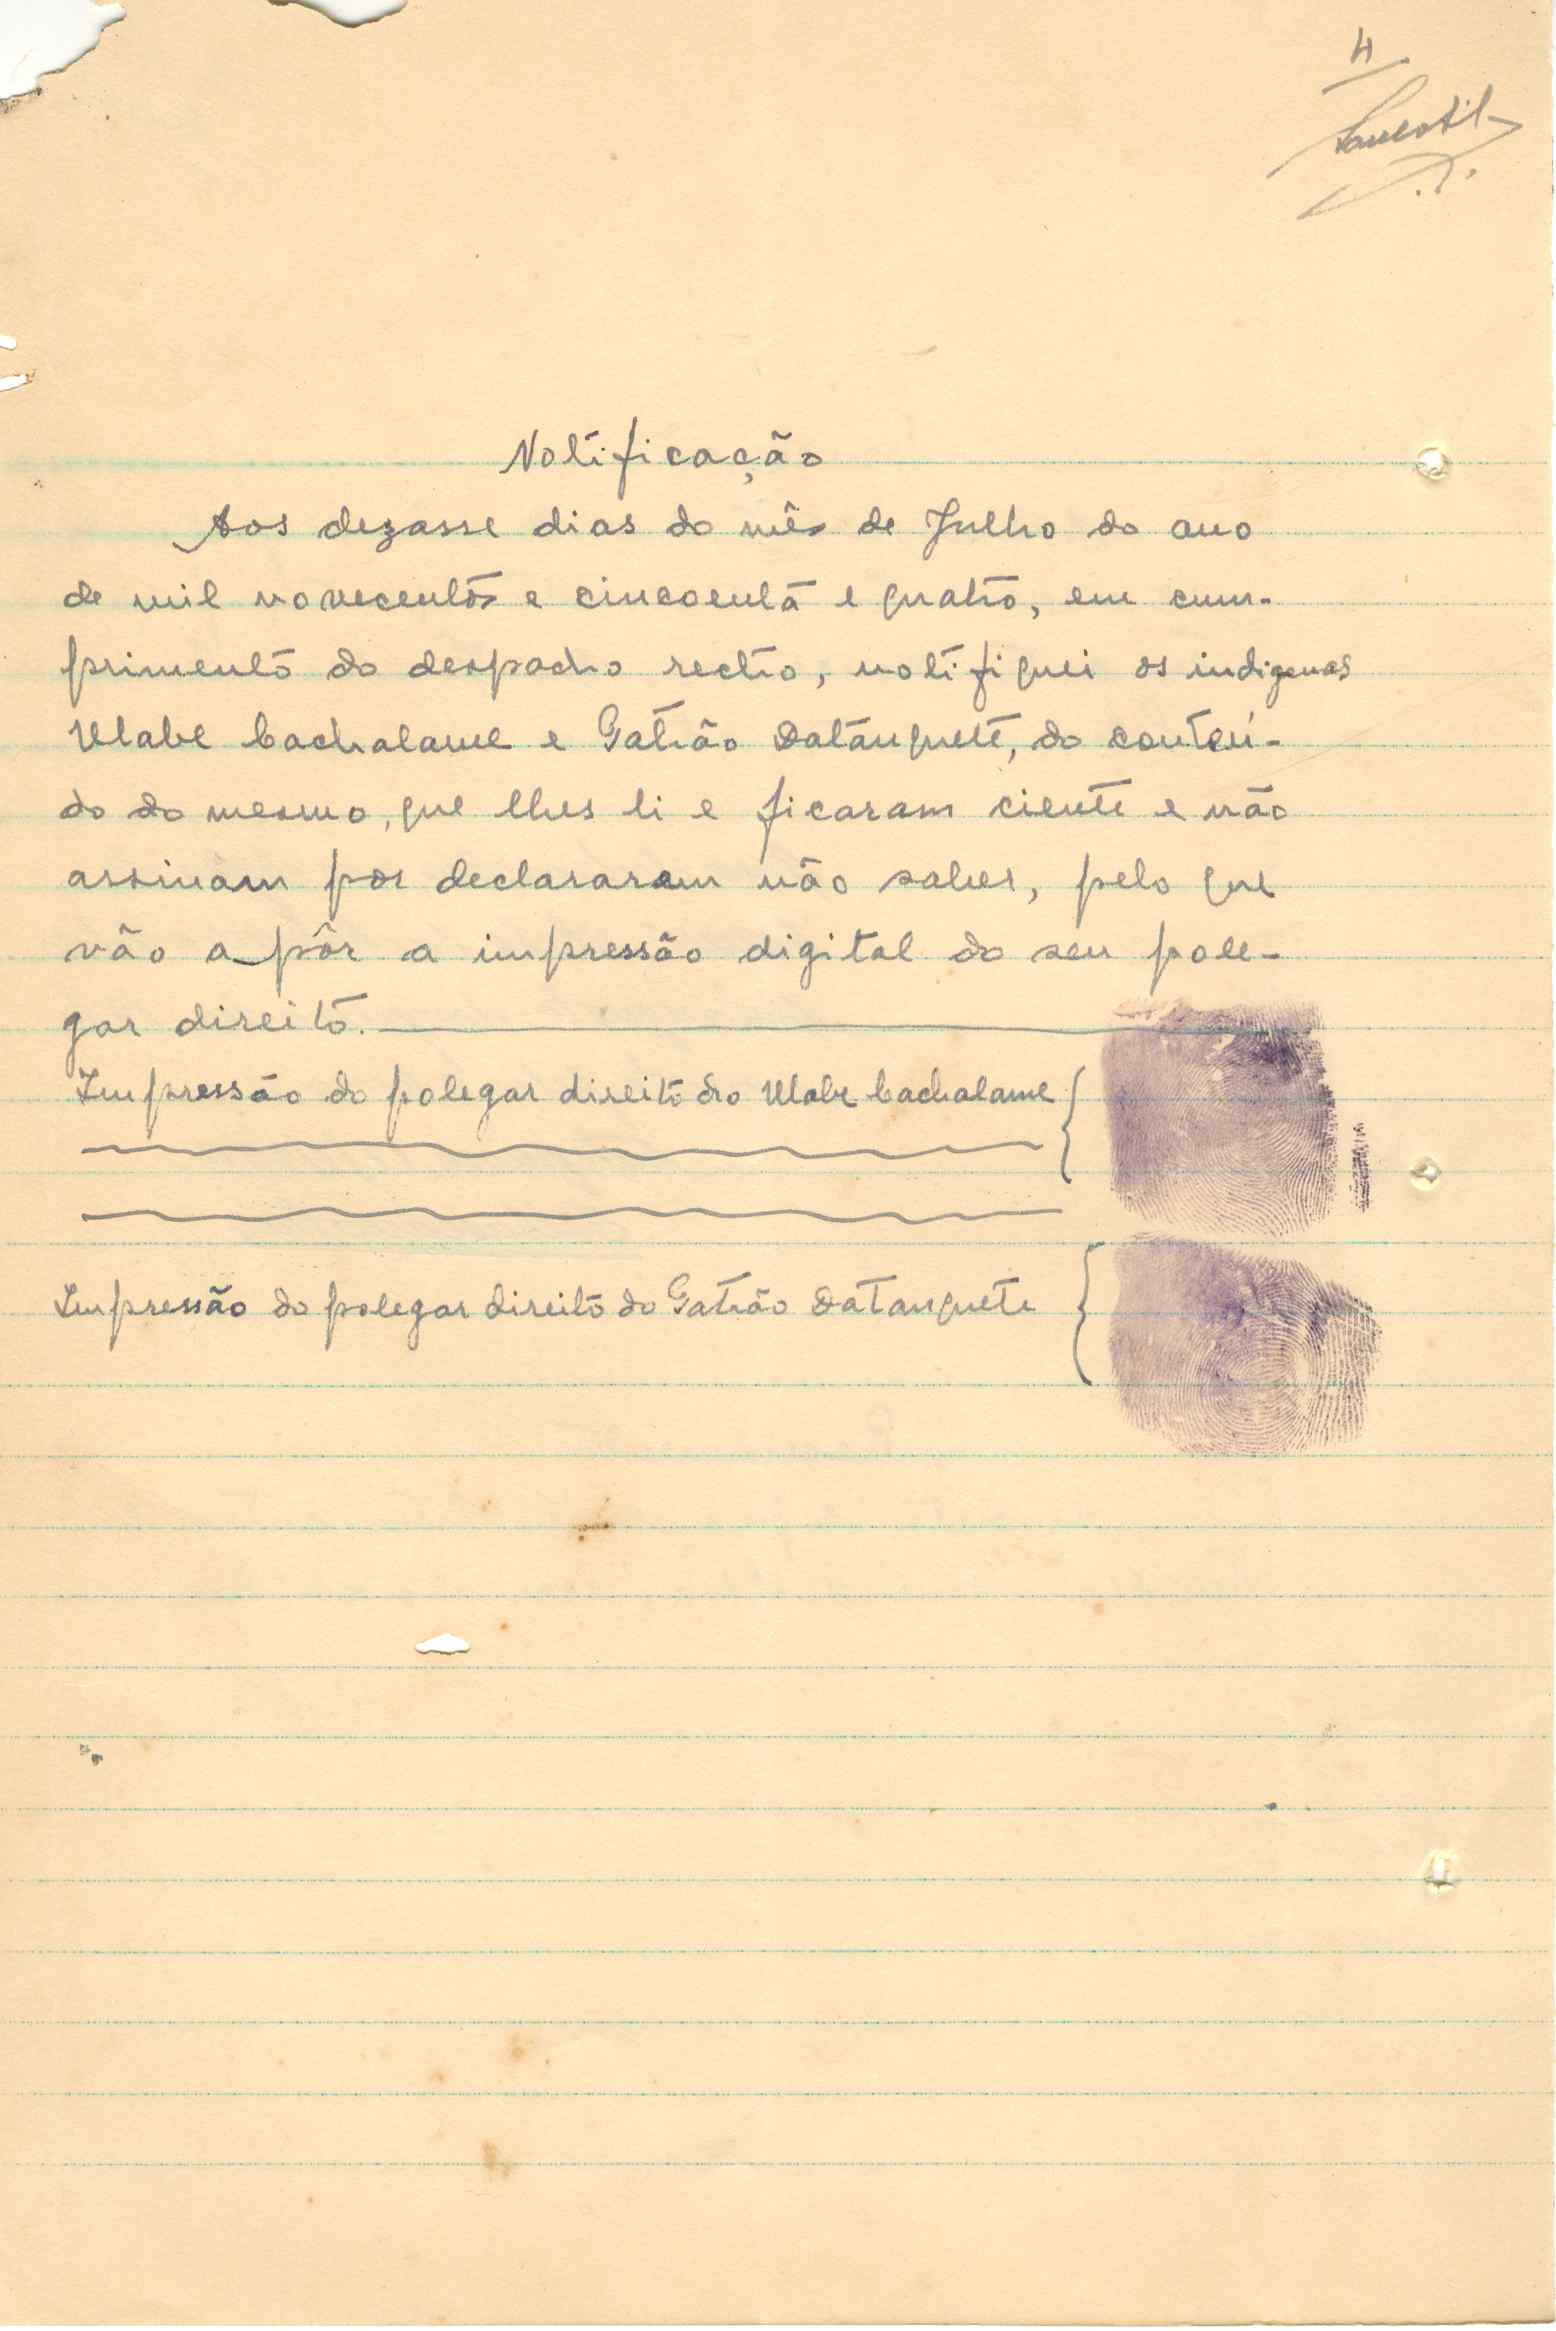 4
Notificação
Aos dezasse dias do mês de Julho do ano
de mil novecentos e cincoenta e quatro, em cum-
primento do despacho rectro, notifiquei os indigenas
Ulabe Cachalame e Gatrão Datanquete, do conteú-
do do mesmo, que lhes li e ficaram ciente e não
assinam por declararam não saber, pelo que
vão a pôr a impressão digital do seu pole-
gar direito.
Impressão do polegar direito do Ulabe Cachalame
Impressão do polegar direito do Gatrão Datanquete